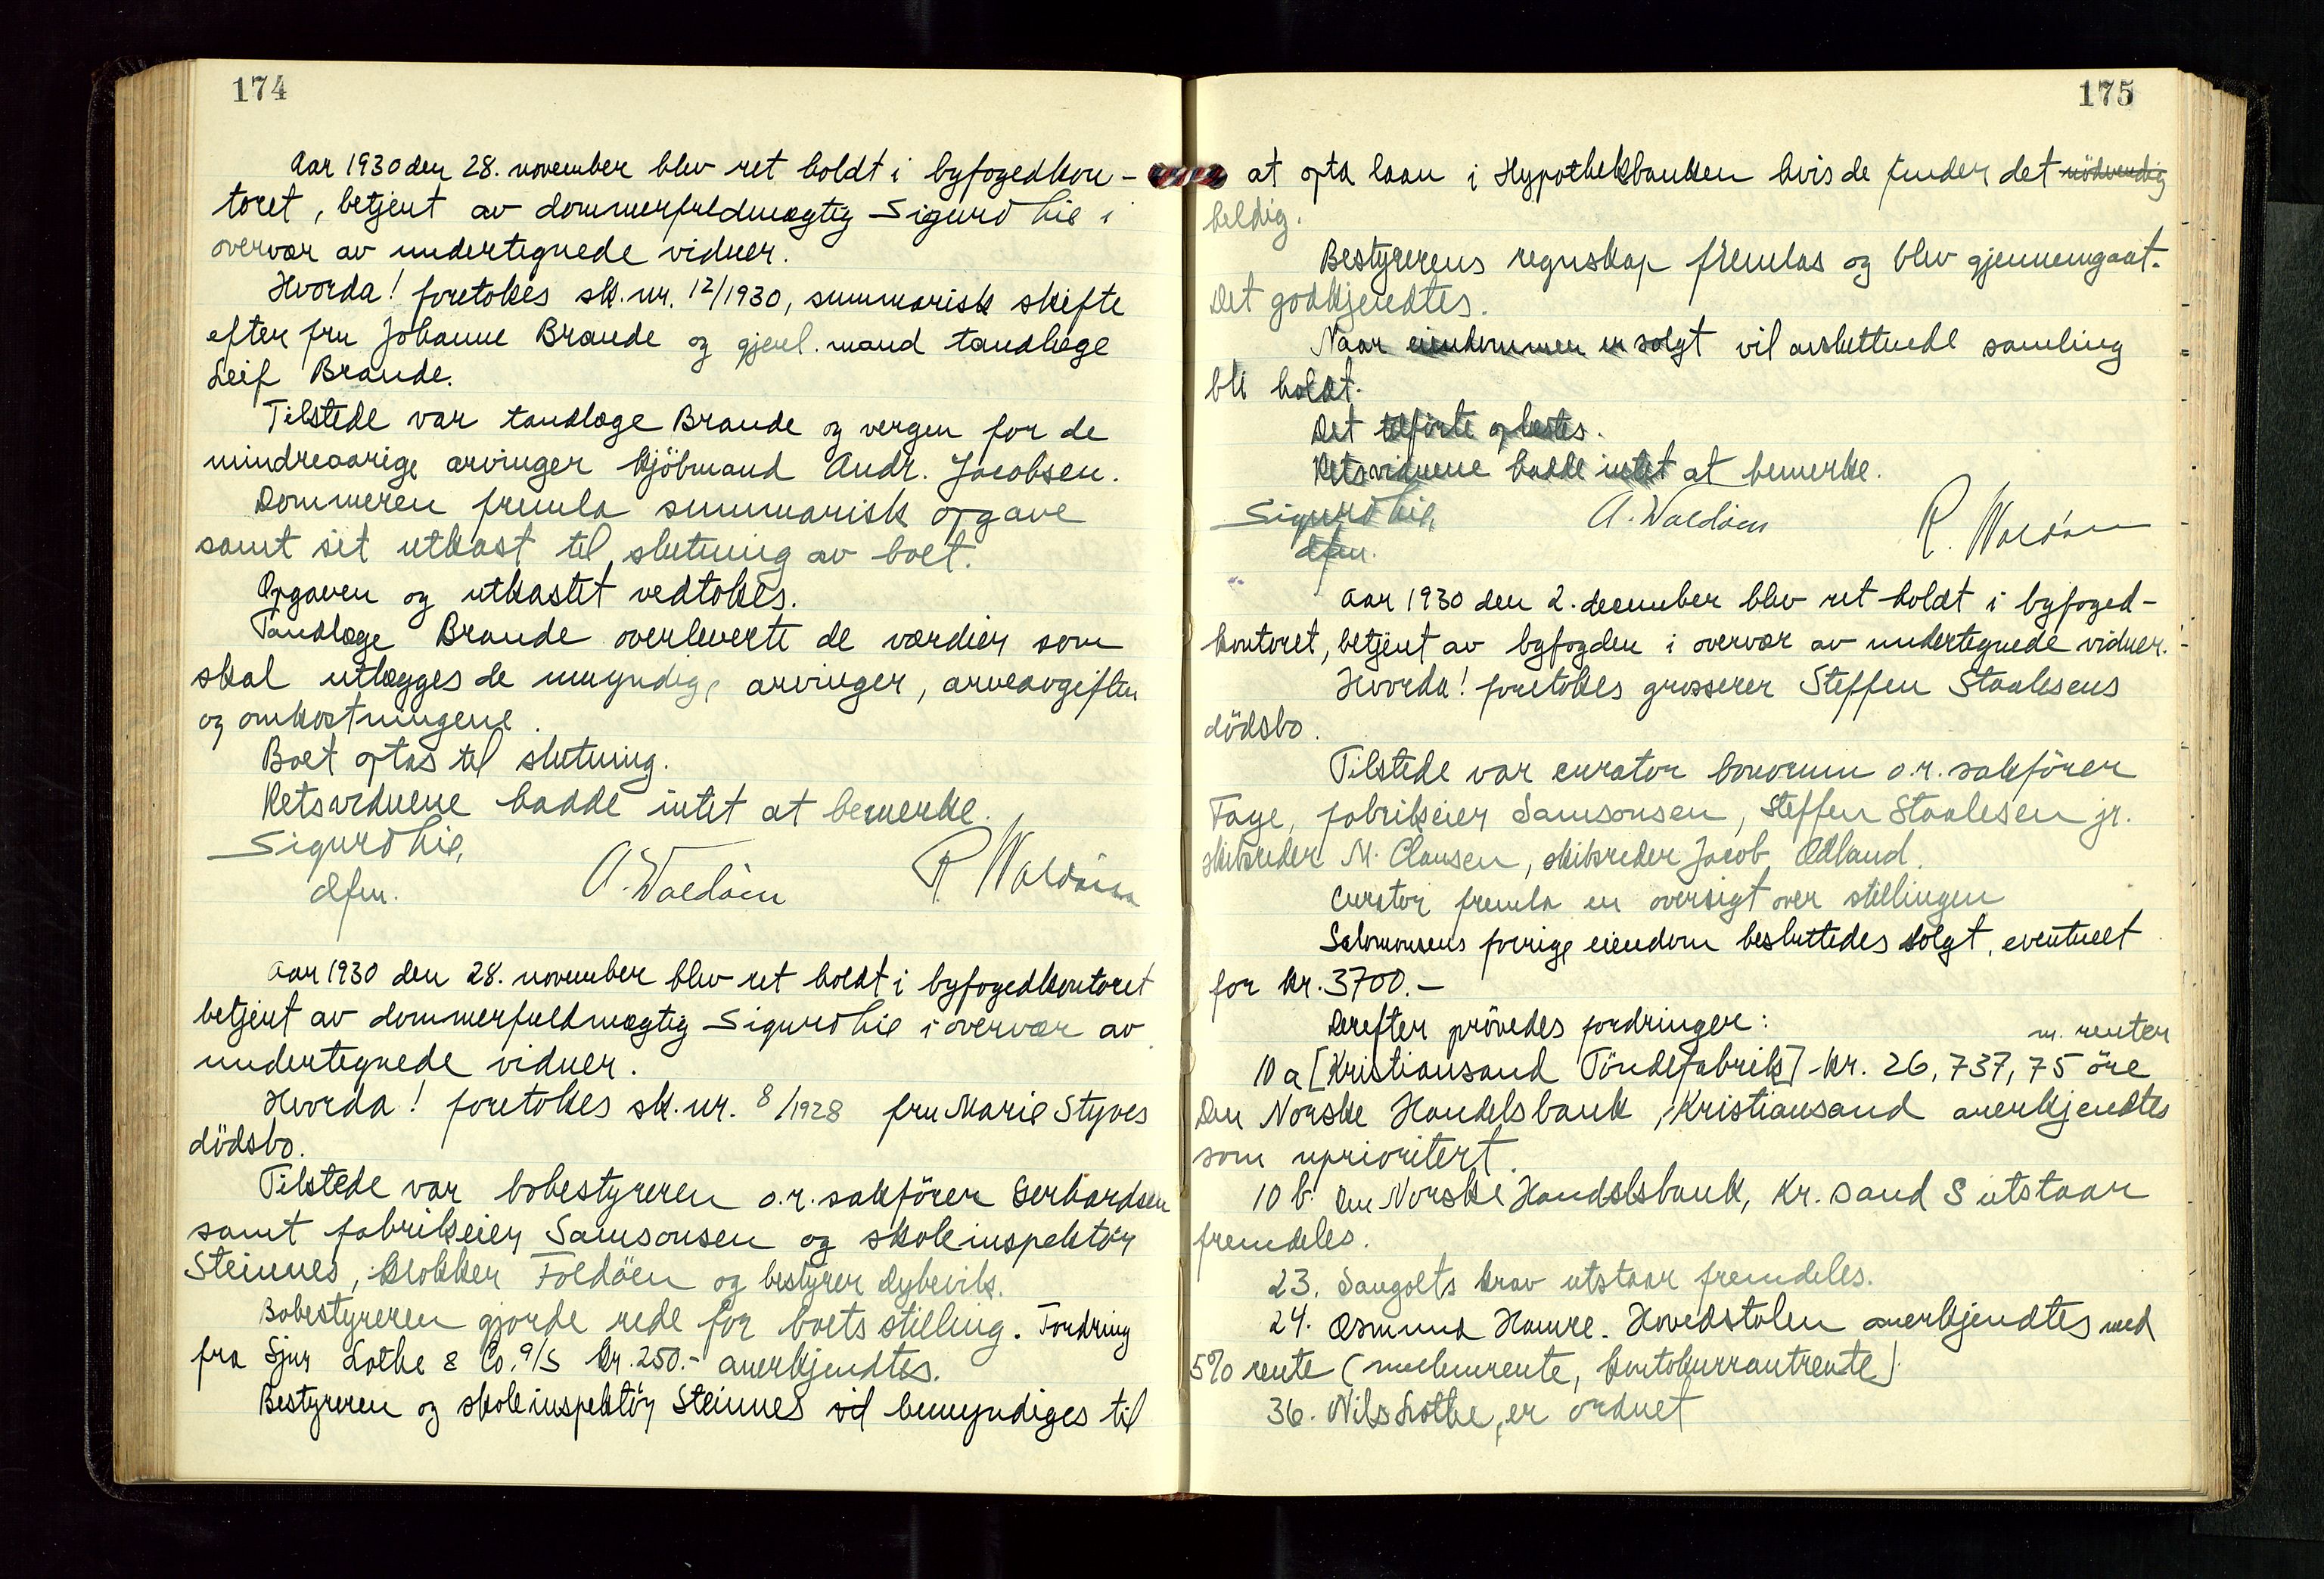 174
Aar 1930 den 28. november blev ret holdt i byfogedkon-
toret, betjent av dommerfuldmægtig Sigurd Lie i
overvær av undertegnede vidner.
Hvorda! foretokes sk.nr. 12/1930, summarisk skifte
efter fru Johanne Brande og gjenl. mand tandlæge
Leif Brande.
Tilstede var tandlæge Brande og vergen for de
mindreaarige arvinger kjöbmand Andr. Jacobsen.
Dommeren fremla summarisk opgave
samt sit utkast til slutning av boet.
Opgaven og utkastet vedtokes.
Tandlæge Brande overleverte de værdier som
skal utlægges de umyndige arvinger, arveavgiften
og omkostningene.
Boet optas til slutning.
Retsvidnene hadde intet at bemerke.
Sigurd Lie,
dfm.
A. Waldöen
R. Waldöen
Aar 1930 den 28. november blev ret holdt i byfogedkontoret
betjent av dommerfuldmægtig Sigurd Lie i overvær av
undertegnede vidner.
Hvorda! foretokes sk.nr. 8/1928 fru Marie Styves
dödsbo.
Tilstede var bobestyreren o.r.sakförer Gerhardsen
samt fabrikeier Samsonsen og skoleinspektör
Steinnes, klokker Foldöen og bestyrer Dybevik.
Bobestyreren gjorde rede for boets stilling. Fordring
fra Sjur Lothe & Co. A/S kr. 250.- anerkjendtes.
Bestyreren og skoleinspektör Steinnes vil bemyndiges til
175
at opta laan i Hypothekbanken hvis de finder det nödvendig
heldig.
Bestyrerens regnskap fremlas og blev gjennemgaat.
Det godkjendtes.
Naar eiendommen er solgt vil avsluttende samling
bli holdt.
Det tilförte oplæstes.
Retsvidnene hadde intet at bemerke.
Sigurd Lie,
dfm.
A. Waldöen
R. Waldöen
Aar 1930 den 2. december blev ret holdt i byfoged-
kontoret, betjent av byfogden i overvær av undertegnede vidner.
Hvorda! foretokes grosserer Steffen Staalesens
dödsbo.
Tilstede var curator bonorum o.r.sakförer
Faye, fabrikeier Samsonsen, Steffen Staalesen jr.
skibsreder M. Clausen, skibsreder Jacob Odland.
Curator fremla en oversigt over stillingen
Salomonsens forrige eiendom besluttedes solgt, eventuelt
for kr. 3700.-
Derefter prövedes fordringer:
m. renter
10 a [Kristiansand Töndefabrik] kr. 26,737,75 öre
Den Norske Handelsbank, Kristiansand anerkjendtes
som uprioritert.
10 b. Den Norske Handelsbank, Kr.sand S utstaar
fremdeles.
23. Saugolts krav utstaar fremdeles.
24. Osmund Hamre. Hovedstolen anerkjendtes med
5% rente (mellemrente, kontokurrantrente)
36. Nils Lothe, er ordnet